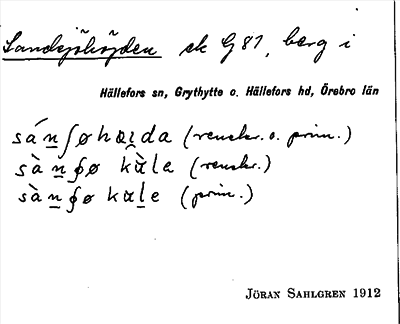 Sandsjöhöjden sk G87, berg i
Hällefors sn, Grythytte o. Hällefors hd, Örebro län
sánʃøhɑi̯da (renskr. o. prim.)
sàn̲ʃø kɑ̀la (renskr.)
sàn̲ʃø kɑl̲e (prim.)
JÖRAN SAHLGREN 1912